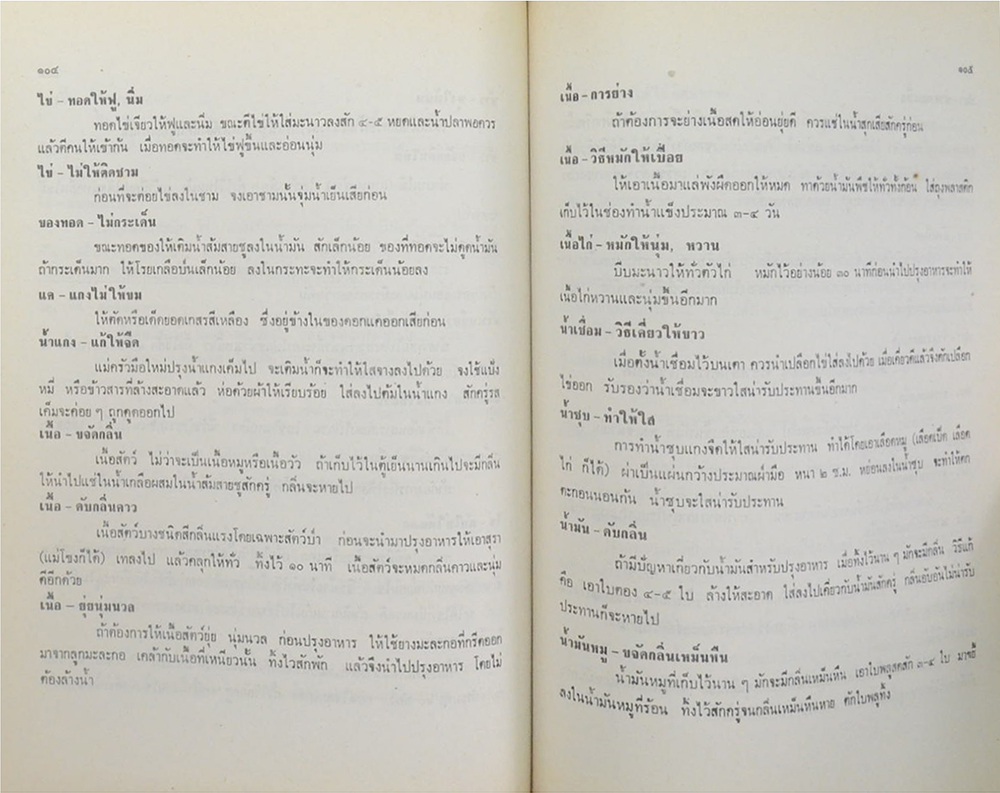 ๑๐๔
ไข่ – ทอดให้ฟู, นิ่ม
ทอดไข่เจียวให้ฟูและนิ่ม ขณะตีไข่ให้ใส่มะนาวลงสัก ๔-๕ หยดและน้ำปลาพอควร
แล้วตีคนให้เข้ากัน เมื่อทอดจะทำให้ไข่ฟูขึ้นและอ่อนนุ่ม
ไข่ – ไม่ให้ติดชาม
ก่อนที่จะต่อยไข่ลงในชาม จงเอาชามนั้นจุ่มน้ำเย็นเสียก่อน
ของทอด – ไม่กระเด็น
ขณะทอดของให้เติมน้ำส้มสายชูลงในน้ำมัน สักเล็กน้อย ของที่ทอดจะไม่ดูดน้ำมัน
ถ้ากระเด็นมาก ให้โรยเกลือป่นเล็กน้อย ลงในกระทะจะทำให้กระเด็นน้อยลง
แค – แกงไม่ให้ขม
ให้ตัดหรือเด็ดยอดเกสรสีเหลือง ซึ่งอยู่ข้างในของดอกแคออกเสียก่อน
น้ำแกง – แก้ให้จืด
แม่ครัวมือใหม่ปรุงน้ำแกงเค็มไป จะเติมน้ำก็จะทำให้ใสจางลงไปด้วย จงใช้แป้ง
หมี่ หรือข้าวสารที่ล้างสะอาดแล้ว ห่อด้วยผ้าให้เรียบร้อย ใส่ลงไปต้มในน้ำแกง สักครู่รส
เค็มจะค่อย ๆ ถูกดูดออกไป
เนื้อ – ขจัดกลิ่น
เนื้อสัตว์ ไม่ว่าจะเป็นเนื้อหมูหรือเนื้อวัว ถ้าเก็บไว้ในตู้เย็นนานเกินไปจะมีกลิ่น
ให้นำไปแช่ในน้ำเกลือผสมในน้ำส้มสายชูสักครู่ กลิ่นจะหายไป
เนื้อ – ดับกลิ่นคาว
เนื้อสัตว์บางชนิดสีกลิ่นแรงโดยเฉพาะสัตว์ป่า ก่อนจะนำมาปรุงอาหารให้เอาสุรา
(แม่โขงก็ได้) เทลงไป แล้วคลุกให้ทั่ว ทิ้งไว้ ๑๐ นาที เนื้อสัตว์จะหมดกลิ่นคาวและนุ่ม
ดีอีกด้วย
เนื้อ – ยุ่ยนุ่มนวล
ถ้าต้องการให้เนื้อสัตว์ยุ่ย นุ่มนวล ก่อนปรุงอาหาร ให้ใช้ยางมะละกอที่กรีดออก
มาจากลูกมะละกอ เคล้ากับเนื้อที่เหนียวนั้น ทิ้งไว้สักพัก แล้วจึงนำไปปรุงอาหาร โดยไม่
ต้องล้างน้ำ
๑๐๕
เนื้อ – การย่าง
ถ้าต้องการจะย่างเนื้อสดให้อ่อนยุ่ยดี ควรแช่ในน้ำสุกเสียสักครู่ก่อน
เนื้อ – วิธีหมักให้เปื่อย
ให้เอาเนื้อมาแล่พังผืดออกให้หมด ทาด้วยน้ำมันพืชให้ทั่วทั้งก้อน ใส่ถุงพลาสติก
เก็บไว้ในช่องทำน้ำแข็งประมาณ ๓-๔ วัน
เนื้อไก่ – หมักให้นุ่ม, หวาน
บีบมะนาวให้ทั่วตัวไก่ หมักไว้อย่างน้อย ๓๐ นาทีก่อนนำไปปรุงอาหารจะทำให้
เนื้อไก่หวานและนุ่มขึ้นอีกมาก
น้ำเชื่อม – วิธีเคี่ยวให้ขาว
เมื่อตั้งน้ำเชื่อมไว้บนเตา ควรนำเปลือกไข่ใส่ลงไปด้วย เมื่อเคี่ยวดีแล้วจึงตักเปลือก
ไข่ออก รับรองว่าน้ำเชื่อมจะขาวใสน่ารับประทานขึ้นอีกมาก
น้ำซุบ – ทำให้ใส
การทำน้ำซุบแกงจืดให้ใสน่ารับประทาน ทำได้โดยเอาเลือดหมู (เลือดเป็ด เลือด
ไก่ ก็ได้) ผ่าเป็นแผ่นกว้างประมาณฝ่ามือ หนา ๒ ซ.ม. หย่อนลงในน้ำซุบ จะทำให้ตก
ตะกอนนอนก้น น้ำซุบจะใสน่ารับประทาน
น้ำมัน – ดับกลิ่น
ถ้ามีปัญหาเกี่ยวกับน้ำมันสำหรับปรุงอาหาร เมื่อทิ้งไว้นาน ๆ มักจะมีกลิ่น วิธีแก้
คือ เอาใบตอง ๔-๕ ใบ ล้างให้สะอาด ใส่ลงไปเคี่ยวกับน้ำมันสักครู่ กลิ่นอับอันไม่น่ารับ
ประทานก็จะหายไป
น้ำมันหมู – ขจัดกลิ่นเหม็นหืน
น้ำมันหมูที่เก็บไว้นาน ๆ มักจะมีกลิ่นเหม็นหืน เอาใบพลูสดสัก ๓-๔ ใบ มาขยี้
ลงในน้ำมันหมูที่ร้อน ทิ้งไว้สักครู่จนกลิ่นเหม็นหืนหาย ตักใบพลูทิ้ง